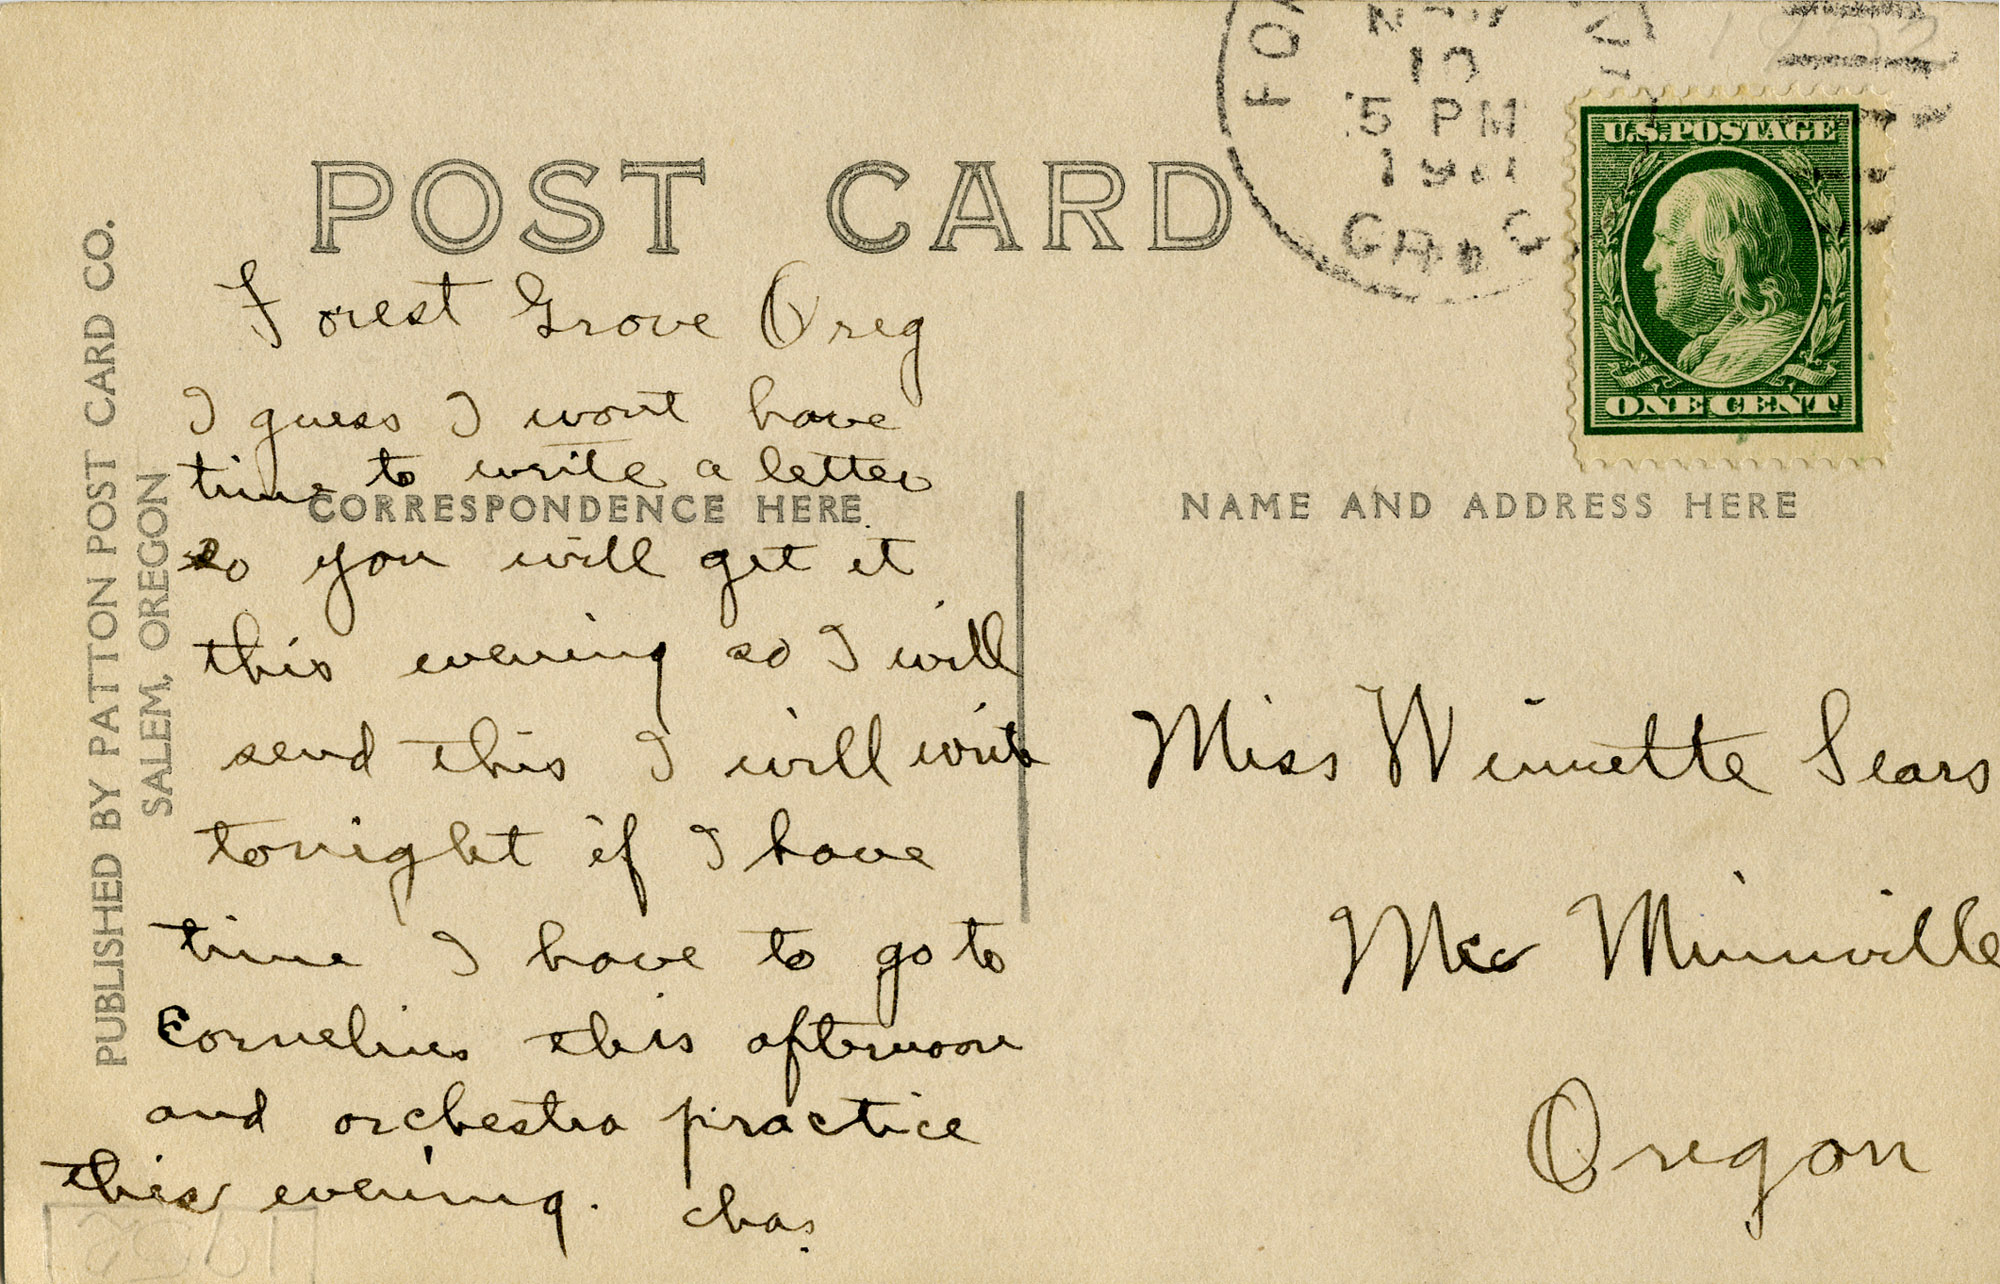 POST CARD
PUBLISHED BY PATTON POST CARD CO.
SALEM, OREGON
Forest Grove Oreg
I guess I wont have
time to write a letter
CORRESPONDENCE HERE
so you will get it
this evening so I will
send this I will write
tonight if I have
time I have to go to
Cornelius this afternoon
and orchestra practice
this evening. Chas.
5 PM
U.S. POSTAGE
ONE CENT
NAME AND ADDRESS HERE
Miss Winnette Sears
Mc Minnville
Oregon